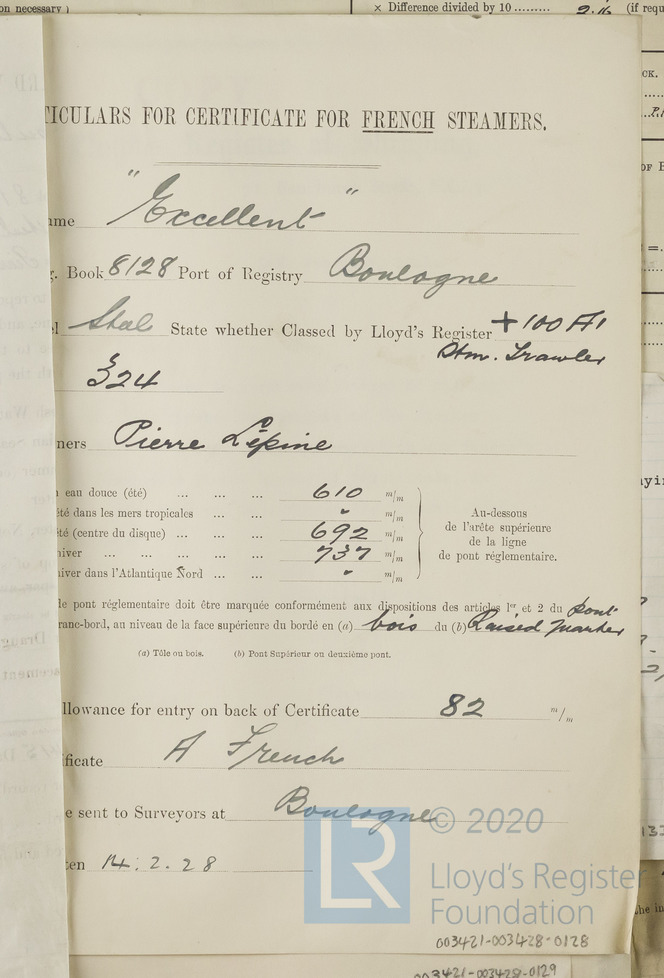 on necessary )
× Difference divided by 10 ......... 2.16 (if requ
TICULARS FOR CERTIFICATE FOR FRENCH STEAMERS.
me "Excellent"
. Book 8128 Port of Registry Boulogne
l Steel State whether Classed by Lloyd's Register + 100 A1
Stm. Trawler
324
ners Pierre Lépine
eau douce (été) ... ... ... 610 m/m
té dans les mers tropicales ... ... " m/m
té (centre du disque) ... ... ... 692 m/m
iver ... ... ... ... ... 737 m/m
iver dans l'Atlantique Nord ... ... " m/m
Au-dessous
de l'arête supérieure
de la ligne
de pont réglementaire.
le pont réglementaire doit être marquée conformément aux dispositions des articles 1er et 2 du pont
ranc-bord, au niveau de la face supérieure du bordé en (a) bois du (b) Raised quarter
(a) Tôle ou bois. (b) Pont Supérieur ou deuxième pont.
llowance for entry on back of Certificate 82 m/m
ficate A French
e sent to Surveyors at Boulogne
ten 14.2.28
LR © 2020
Lloyd's Register
Foundation
003421-003428-0128
003421-003428-0129